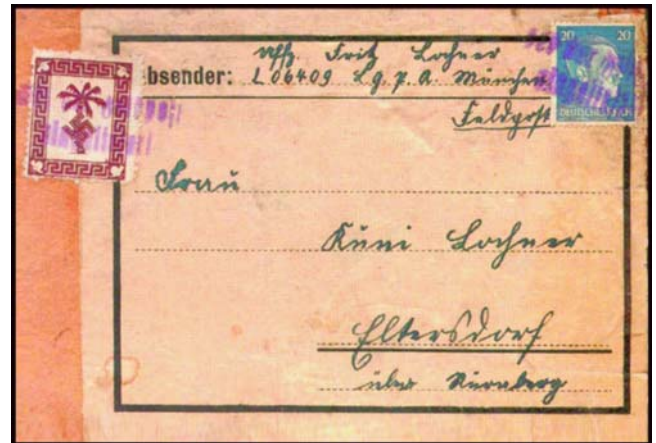 Uffz. Fritz Lochner
bsender: L 06409 L.g.p.A. München
Feldpost
20 20
DEUTSCHES REICH
Frau
Küni Lochner
Eltersdorf
über Nürnberg